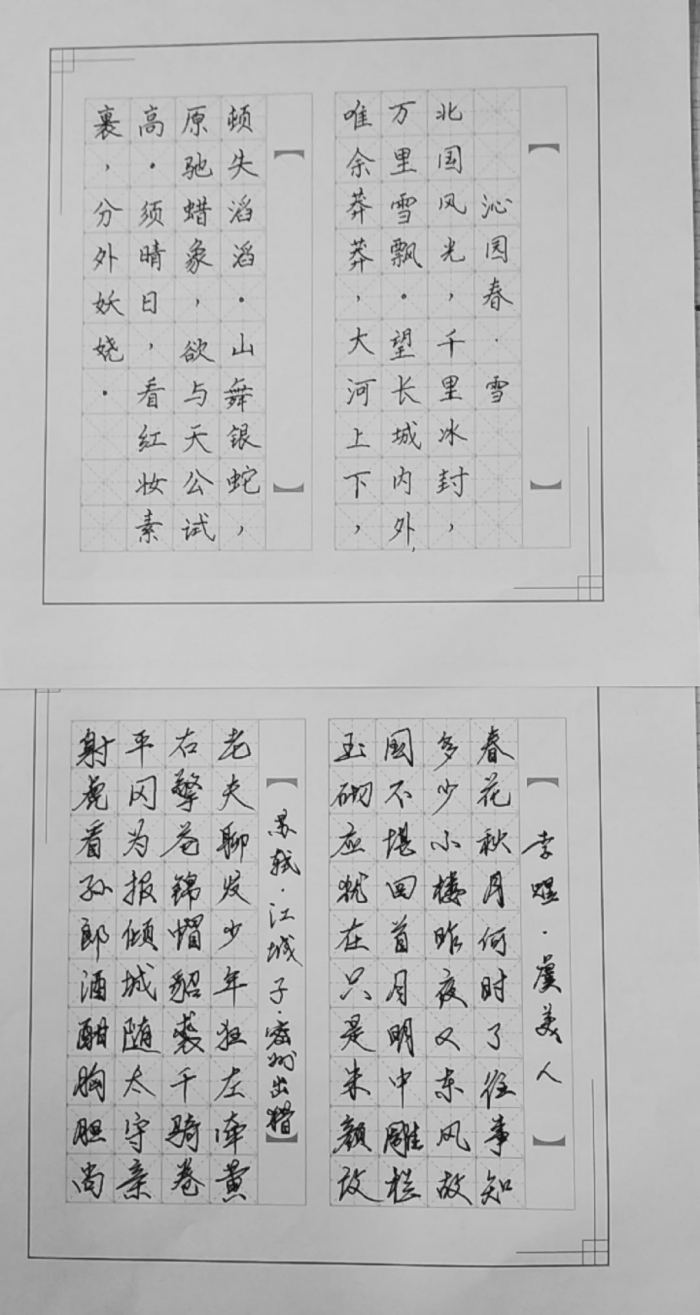 沁园春·雪
北国风光，千里冰封，
万里雪飘。望长城内外，
唯余莽莽，大河上下，
顿失滔滔。山舞银蛇，
原驰蜡象，欲与天公试
高。须晴日，看红妆素
裹，分外妖娆。
【李煜·虞美人】
春花秋月何时了往事知
多少小楼昨夜又东风故
国不堪回首月明中雕栏
玉砌应犹在只是朱颜改
【苏轼·江城子·密州出猎】
老夫聊发少年狂左牵黄
右擎苍锦帽貂裘千骑卷
平冈为报倾城随太守亲
射虎看孙郎酒酣胸胆尚